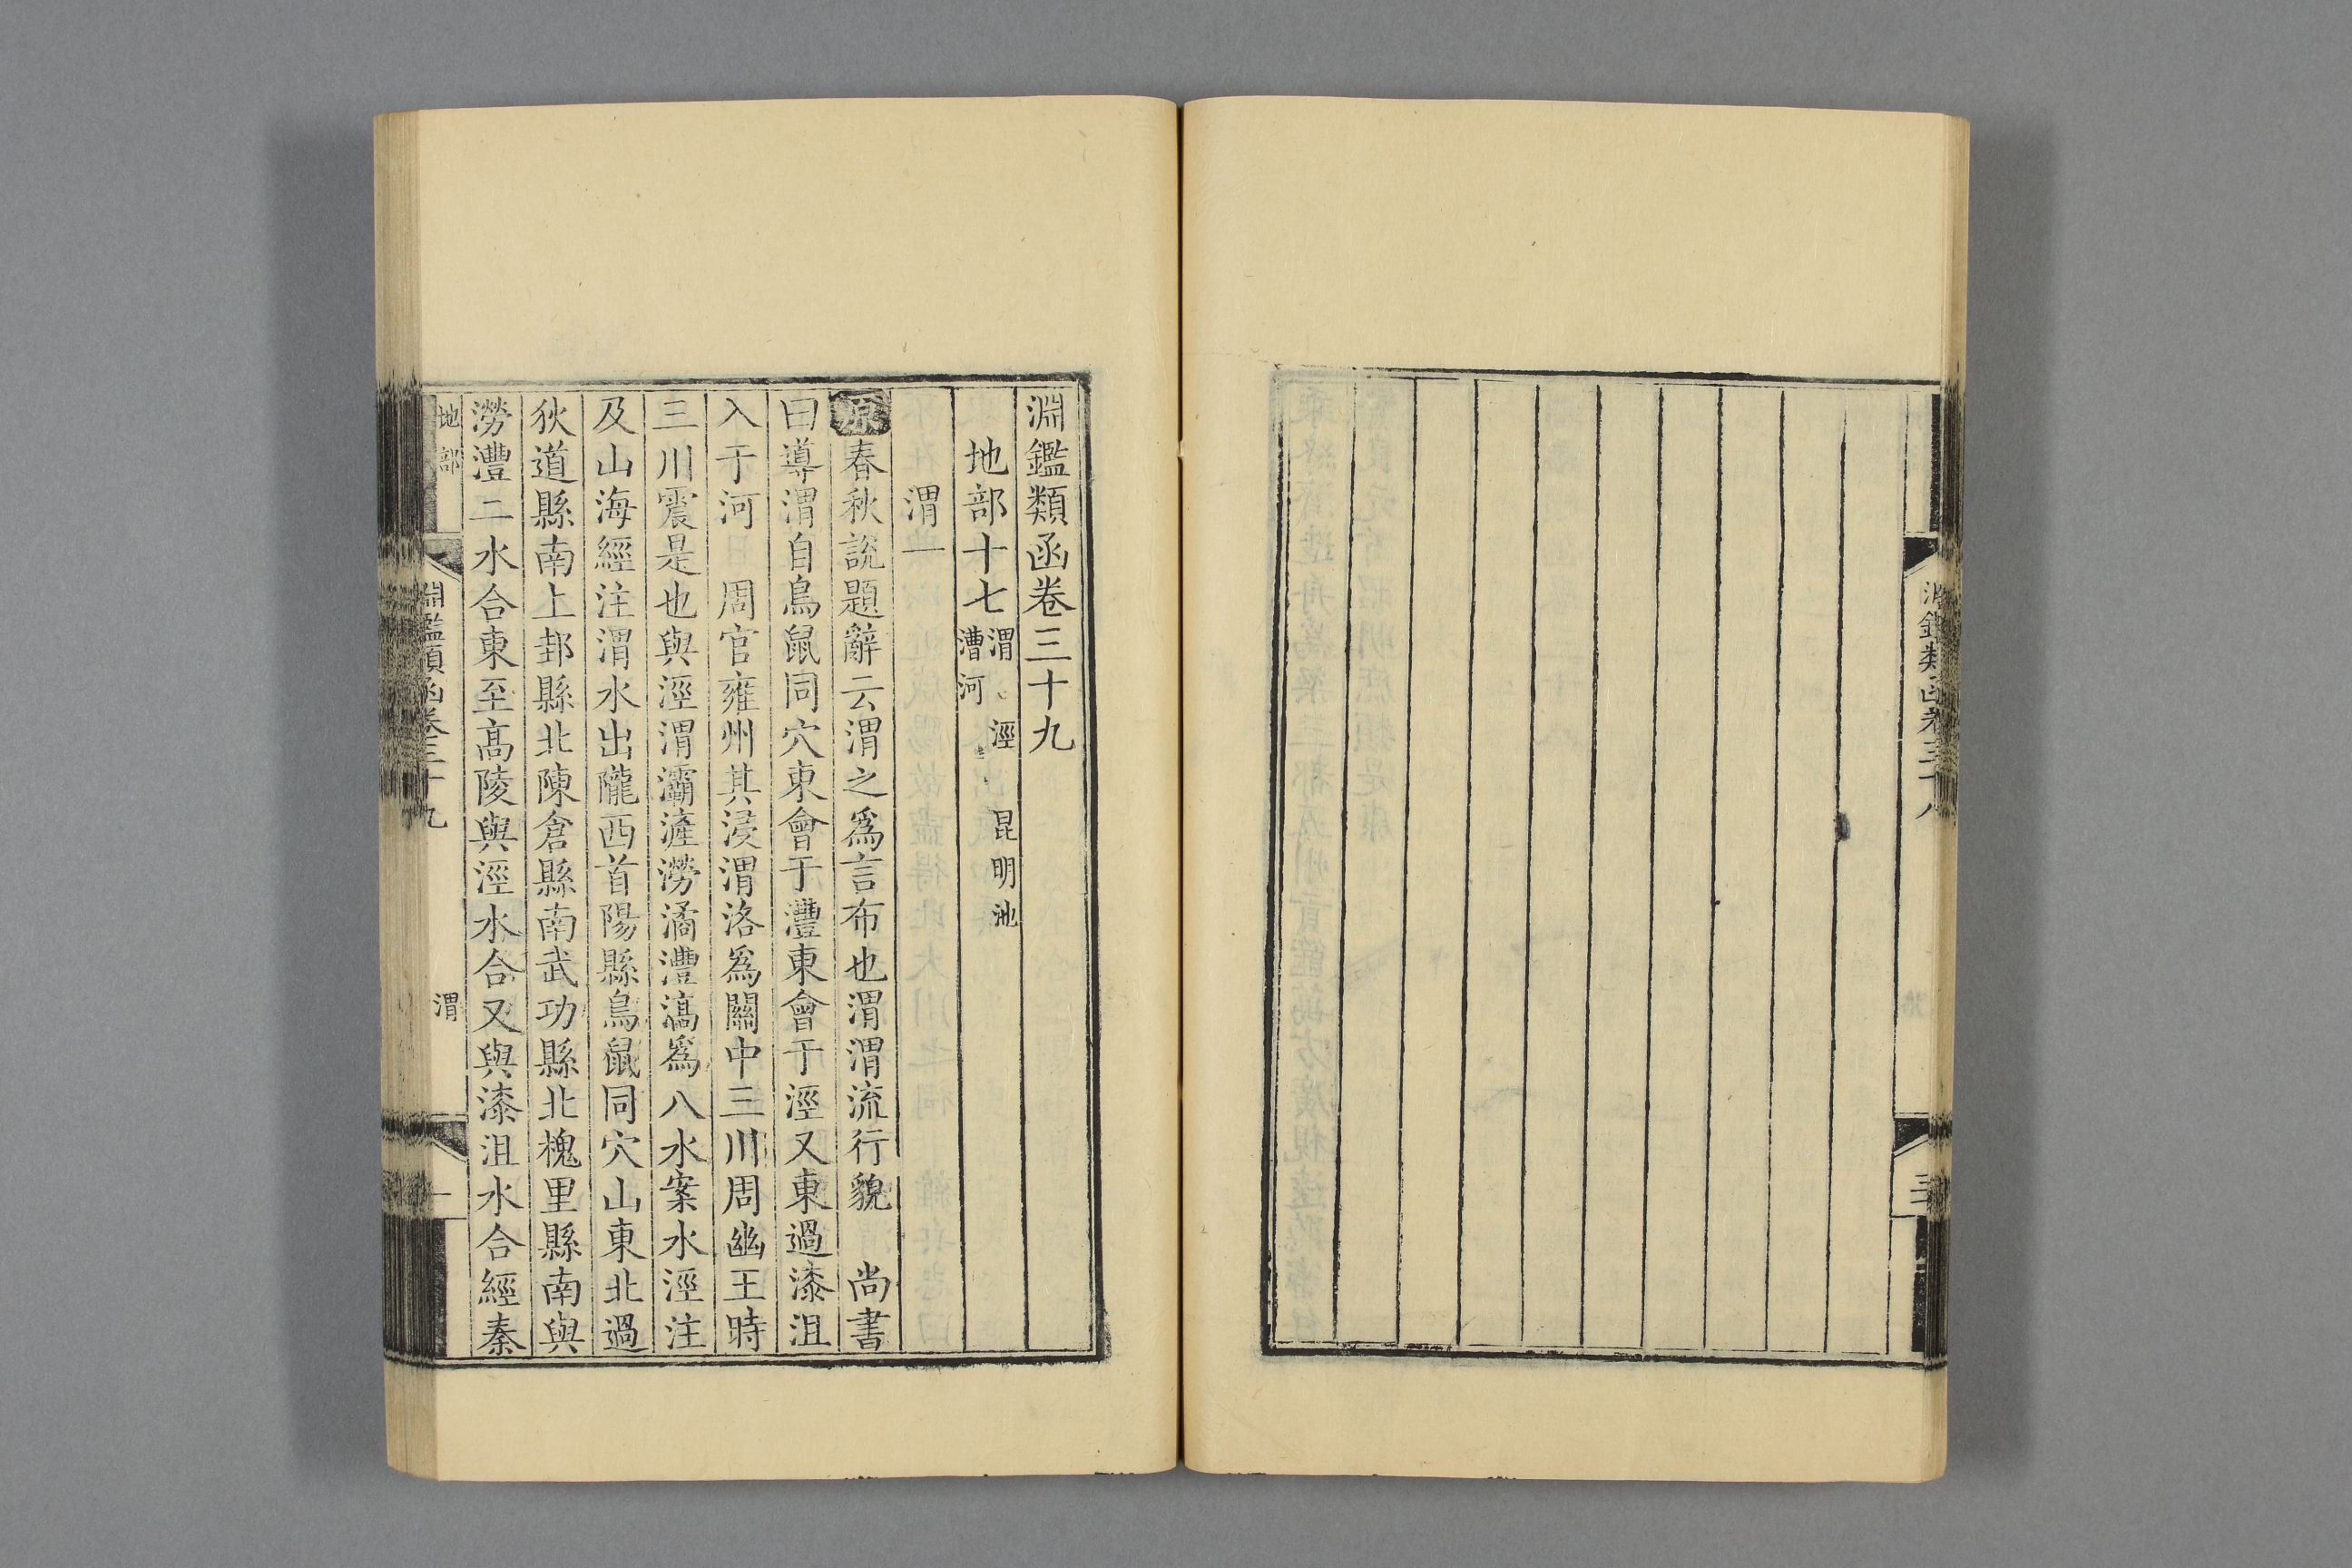 淵鑑類函卷三十八
三
淵鑑類函卷三十九
地部十七 渭 涇 昆明池 漕河
渭一
原春秋說題辭云渭之爲言布也渭渭流行貌 尚書
曰導渭自鳥鼠同穴東會于灃東會于涇又東過漆沮
入于河 周官雍州其浸渭洛爲關中三川周幽王時
三川震是也與涇渭灞滻澇潏灃滈爲八水案水涇注
及山海經注渭水出隴西首陽縣鳥鼠同穴山東北過
狄道縣南上邽縣北陳倉縣南武功縣北槐里縣南與
澇灃二水合東至高陵與涇水合又與漆沮水合經秦
地部 淵鑑類函卷三十九 渭 一